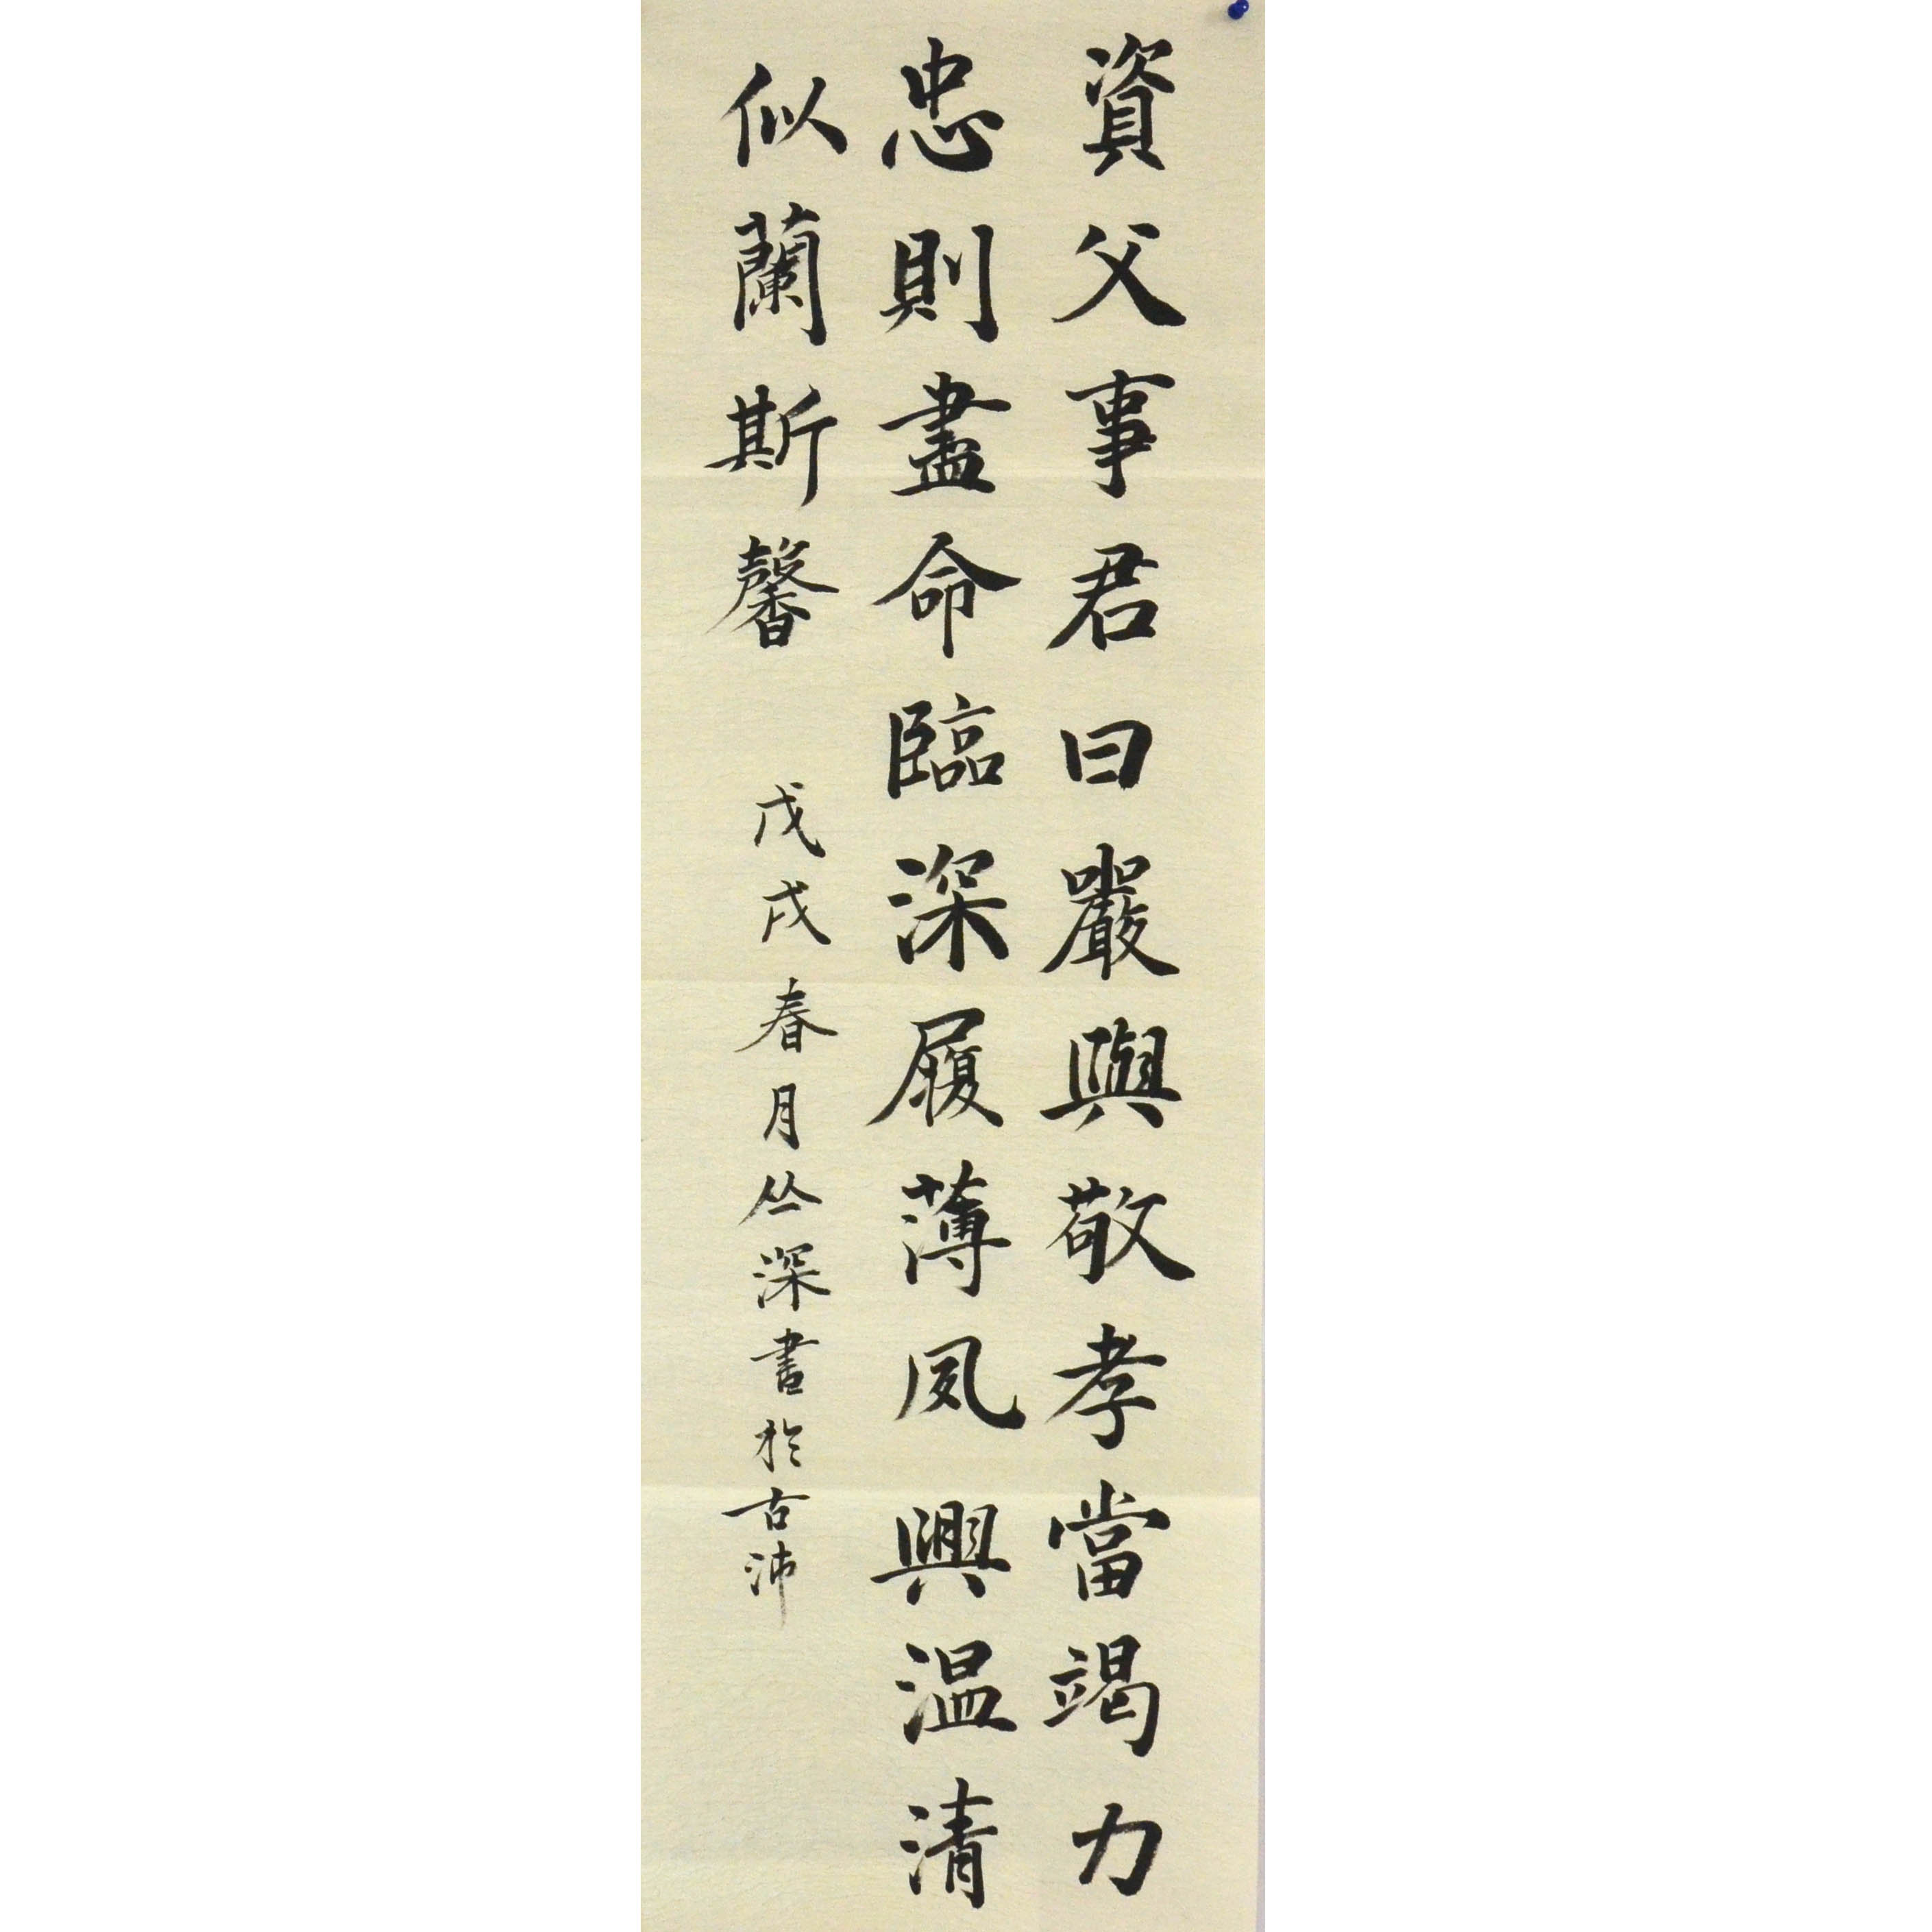 資父事君曰嚴與敬孝當竭力
忠則盡命臨深履薄夙興温清
似蘭斯馨
戊戌春月丛深書於古沛